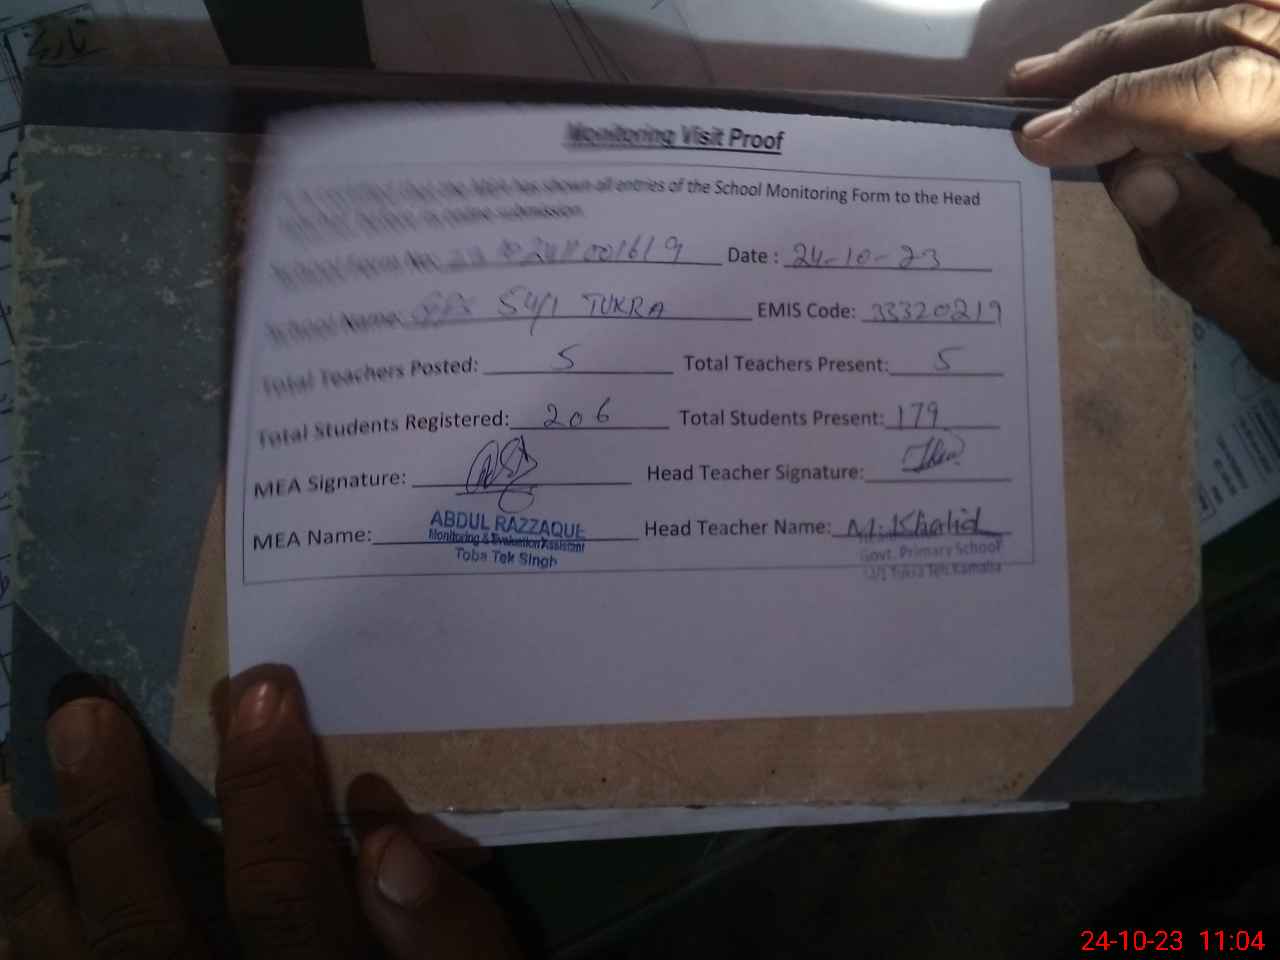 تاریخ
Monitoring Visit Proof
that the MEA has shown all entries of the School Monitoring Form to the Head
online submission.
School Form No: Date : 24-10-23
School Name: GPS 54/1 TUKRA EMIS Code: 33320219
Total Teachers Posted: 5 Total Teachers Present: 5
Total Students Registered: 206 Total Students Present: 179
MEA Signature: Head Teacher Signature:
MEA Name: ABDUL RAZZAQUE Head Teacher Name: M. Khalid
Monitoring & Evaluation Assistant
Toba Tek Singh
Govt. Primary School
54/1 Tukra Teh: Kamalia
24-10-23 11:04